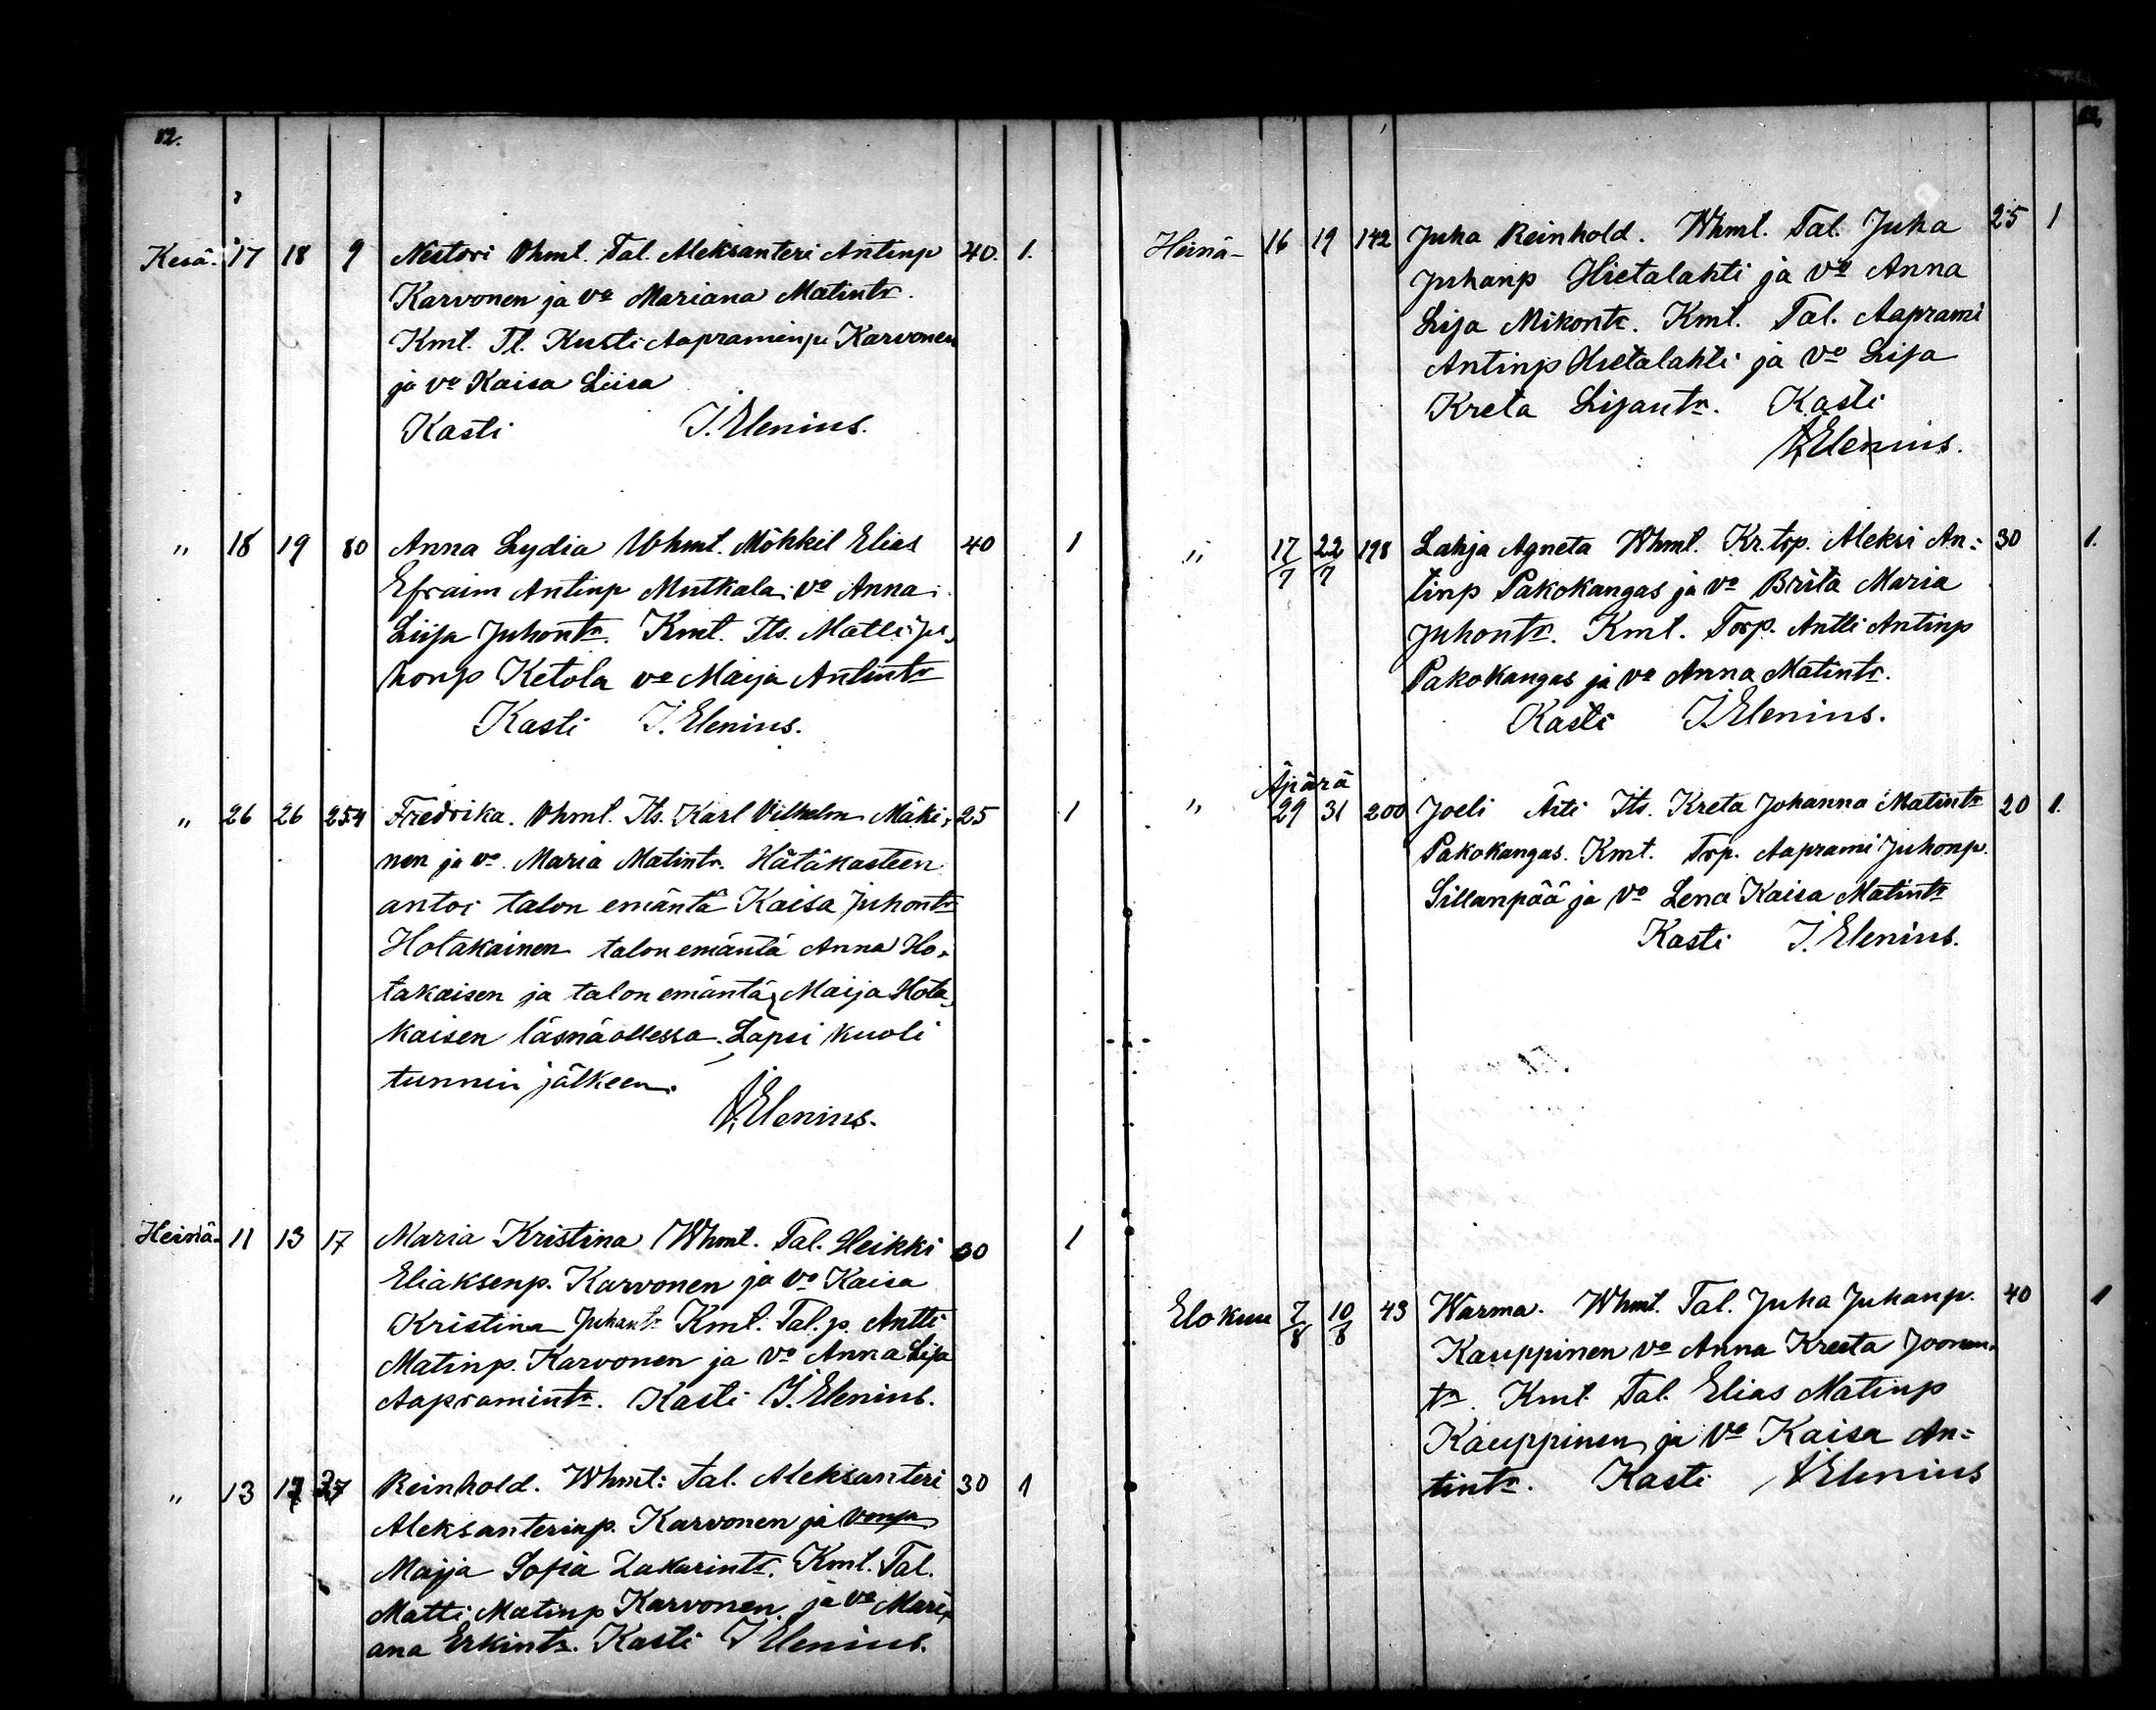 82.
Kesä- 17 18 9 Nestori Vhmt. Tal. Aleksanteri Antinp 40. 1.
Karvonen ja vo Mariana Matintr.
Kmt. Tl. Kusti Aapraminp Karvonen
ja vo Kaisa Liisa
Kasti I. Elenius.
" 18 19 80 Anna Lydia Whmt. Mökkil Elias 40 1
Efraim Antinp Mutkala vo Anna
Liisa Juhontr. Kmt. Its. Matti Ju-
honp Ketola vo Maija Antintr
Kasti I. Elenius.
" 26 26 254 Fredrika. Vhmt. Its. Karl Vilhelm Mäki- 25 1
nen ja vo Maria Matintr. Hätäkasteen
antoi talon emäntä Kaisa Juhontr
Hotakainen talon emäntä Anna Ho-
takaisen ja talon emäntä Maija Hota-
kaisen läsnäollessa. Lapsi kuoli
tunnin jälkeen.
I. Elenius.
Heinä- 11 13 17 Maria Kristina Whmt. Tal. Heikki 30 1
Eliaksenp. Karvonen ja vo Kaisa
Kristina Juhantr Kmt. Tal. p. Antti
Matinp. Karvonen ja vo Anna Lisa
Aapramintr. Kasti I. Elenius.
" 13 17 37 Reinhold. Whmt: Tal. Aleksanteri 30 1
Aleksanterinp. Karvonen ja vonsa
Maija Sofia Zakarintr. Kmt. Tal.
Matti Matinp Karvonen ja vo Mari-
ana Erkintr. Kasti I Elenius.
Heinä- 16 19 142 Juha Reinhold. Whmt. Tal. Juha 25 1
Juhanp Hietalahti ja vo Anna
Lisa Mikontr. Kmt. Tal. Aaprami
Antinp Hietalahti ja vo Lisa
Kreta Lisantr. Kasti
I Elenius.
" 17/7 22/7 198 Lahja Agneta Whmt. Kr. trp. Aleksi An- 30 1.
tinp Pakokangas ja vo Briita Maria
Juhontr. Kmt. Torp. Antti Antinp
Pakokangas ja vo Anna Matintr.
Kasti I. Elenius.
Äpärä
" 29 31 200 Joeli Äiti Its. Kreta Johanna Matintr 20 1.
Pakokangas. Kmt. Trp. Aaprami Juhonp.
Sillanpää ja vo Lena Kaisa Matintr
Kasti I. Elenius.
Elokuu 7/8 10/8 43 Warma. Whmt. Tal. Juha Juhanp. 40 1
Kauppinen vo Anna Kreeta Joonan-
tr. Kmt. Tal. Elias Matinp
Kauppinen ja vo Kaisa An-
tintr. Kasti I Elenius